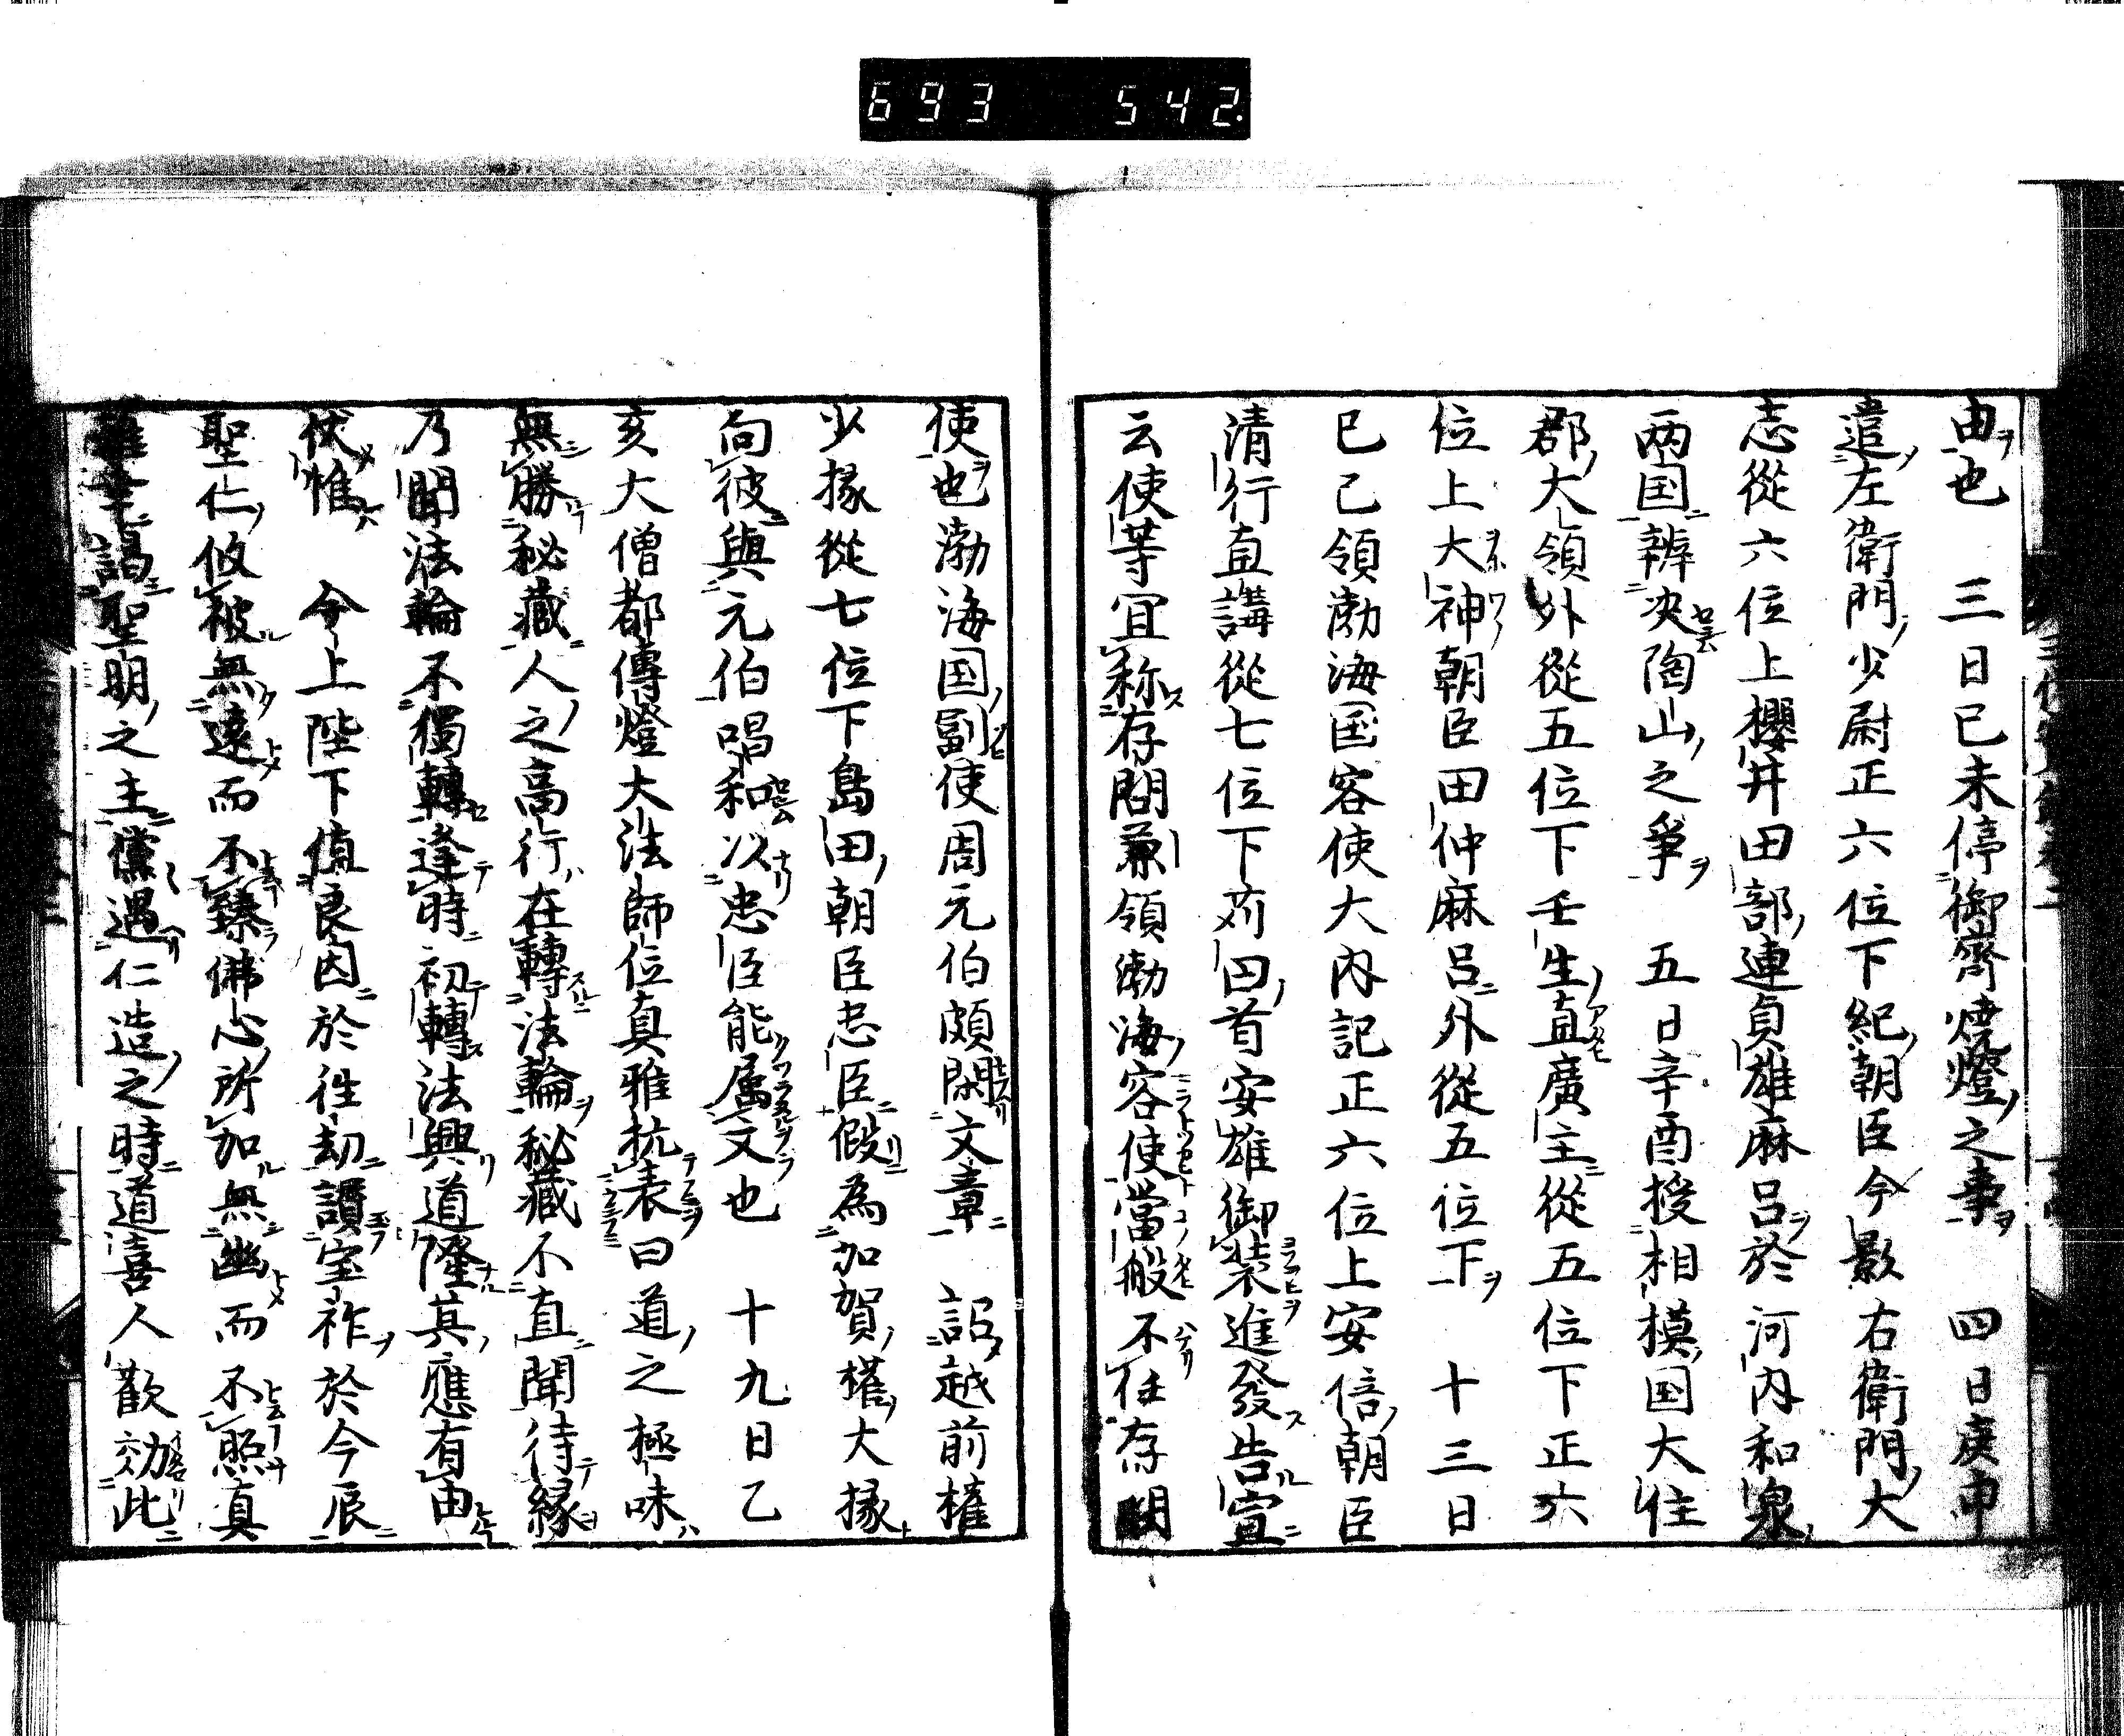 693 542.
由也 三日已未停御齋燒燈之事 四日庚申
遣左衛門少尉正六位下紀朝臣今影右衛門大
志從六位上櫻井田部連貞雄麻呂於河内和泉
兩国辨決陶山之爭 五日辛酉授相模国大住
郡大領外從五位下壬生直廣主從五位下正六
位上大神朝臣田仲麻呂外從五位下 十三日
已己領渤海国客使大内記正六位上安倍朝臣
清行直講從七位下苅田首安雄御裝進發告宣
云使等宜称存問兼領渤海客使當般不任存問
使也渤海国副使周元伯頗閑文章 詔越前權
少掾從七位下島田朝臣忠臣假為加賀權大掾
向彼與元伯唱和以忠臣能属文也 十九日乙
亥大僧都傳燈大法師位真雅抗表曰道之極味
無勝秘藏人之高行在轉法輪秘藏不直聞待縁
乃聞法輪不獨轉逢時初轉法興道隆其應有由
伏惟 今上陛下值良因於徃劫讃宝祚於今辰
聖仁攸被無遠而不臻佛心所加無幽而不照真
謁聖明之主儻遇仁造之時道喜人歡効此